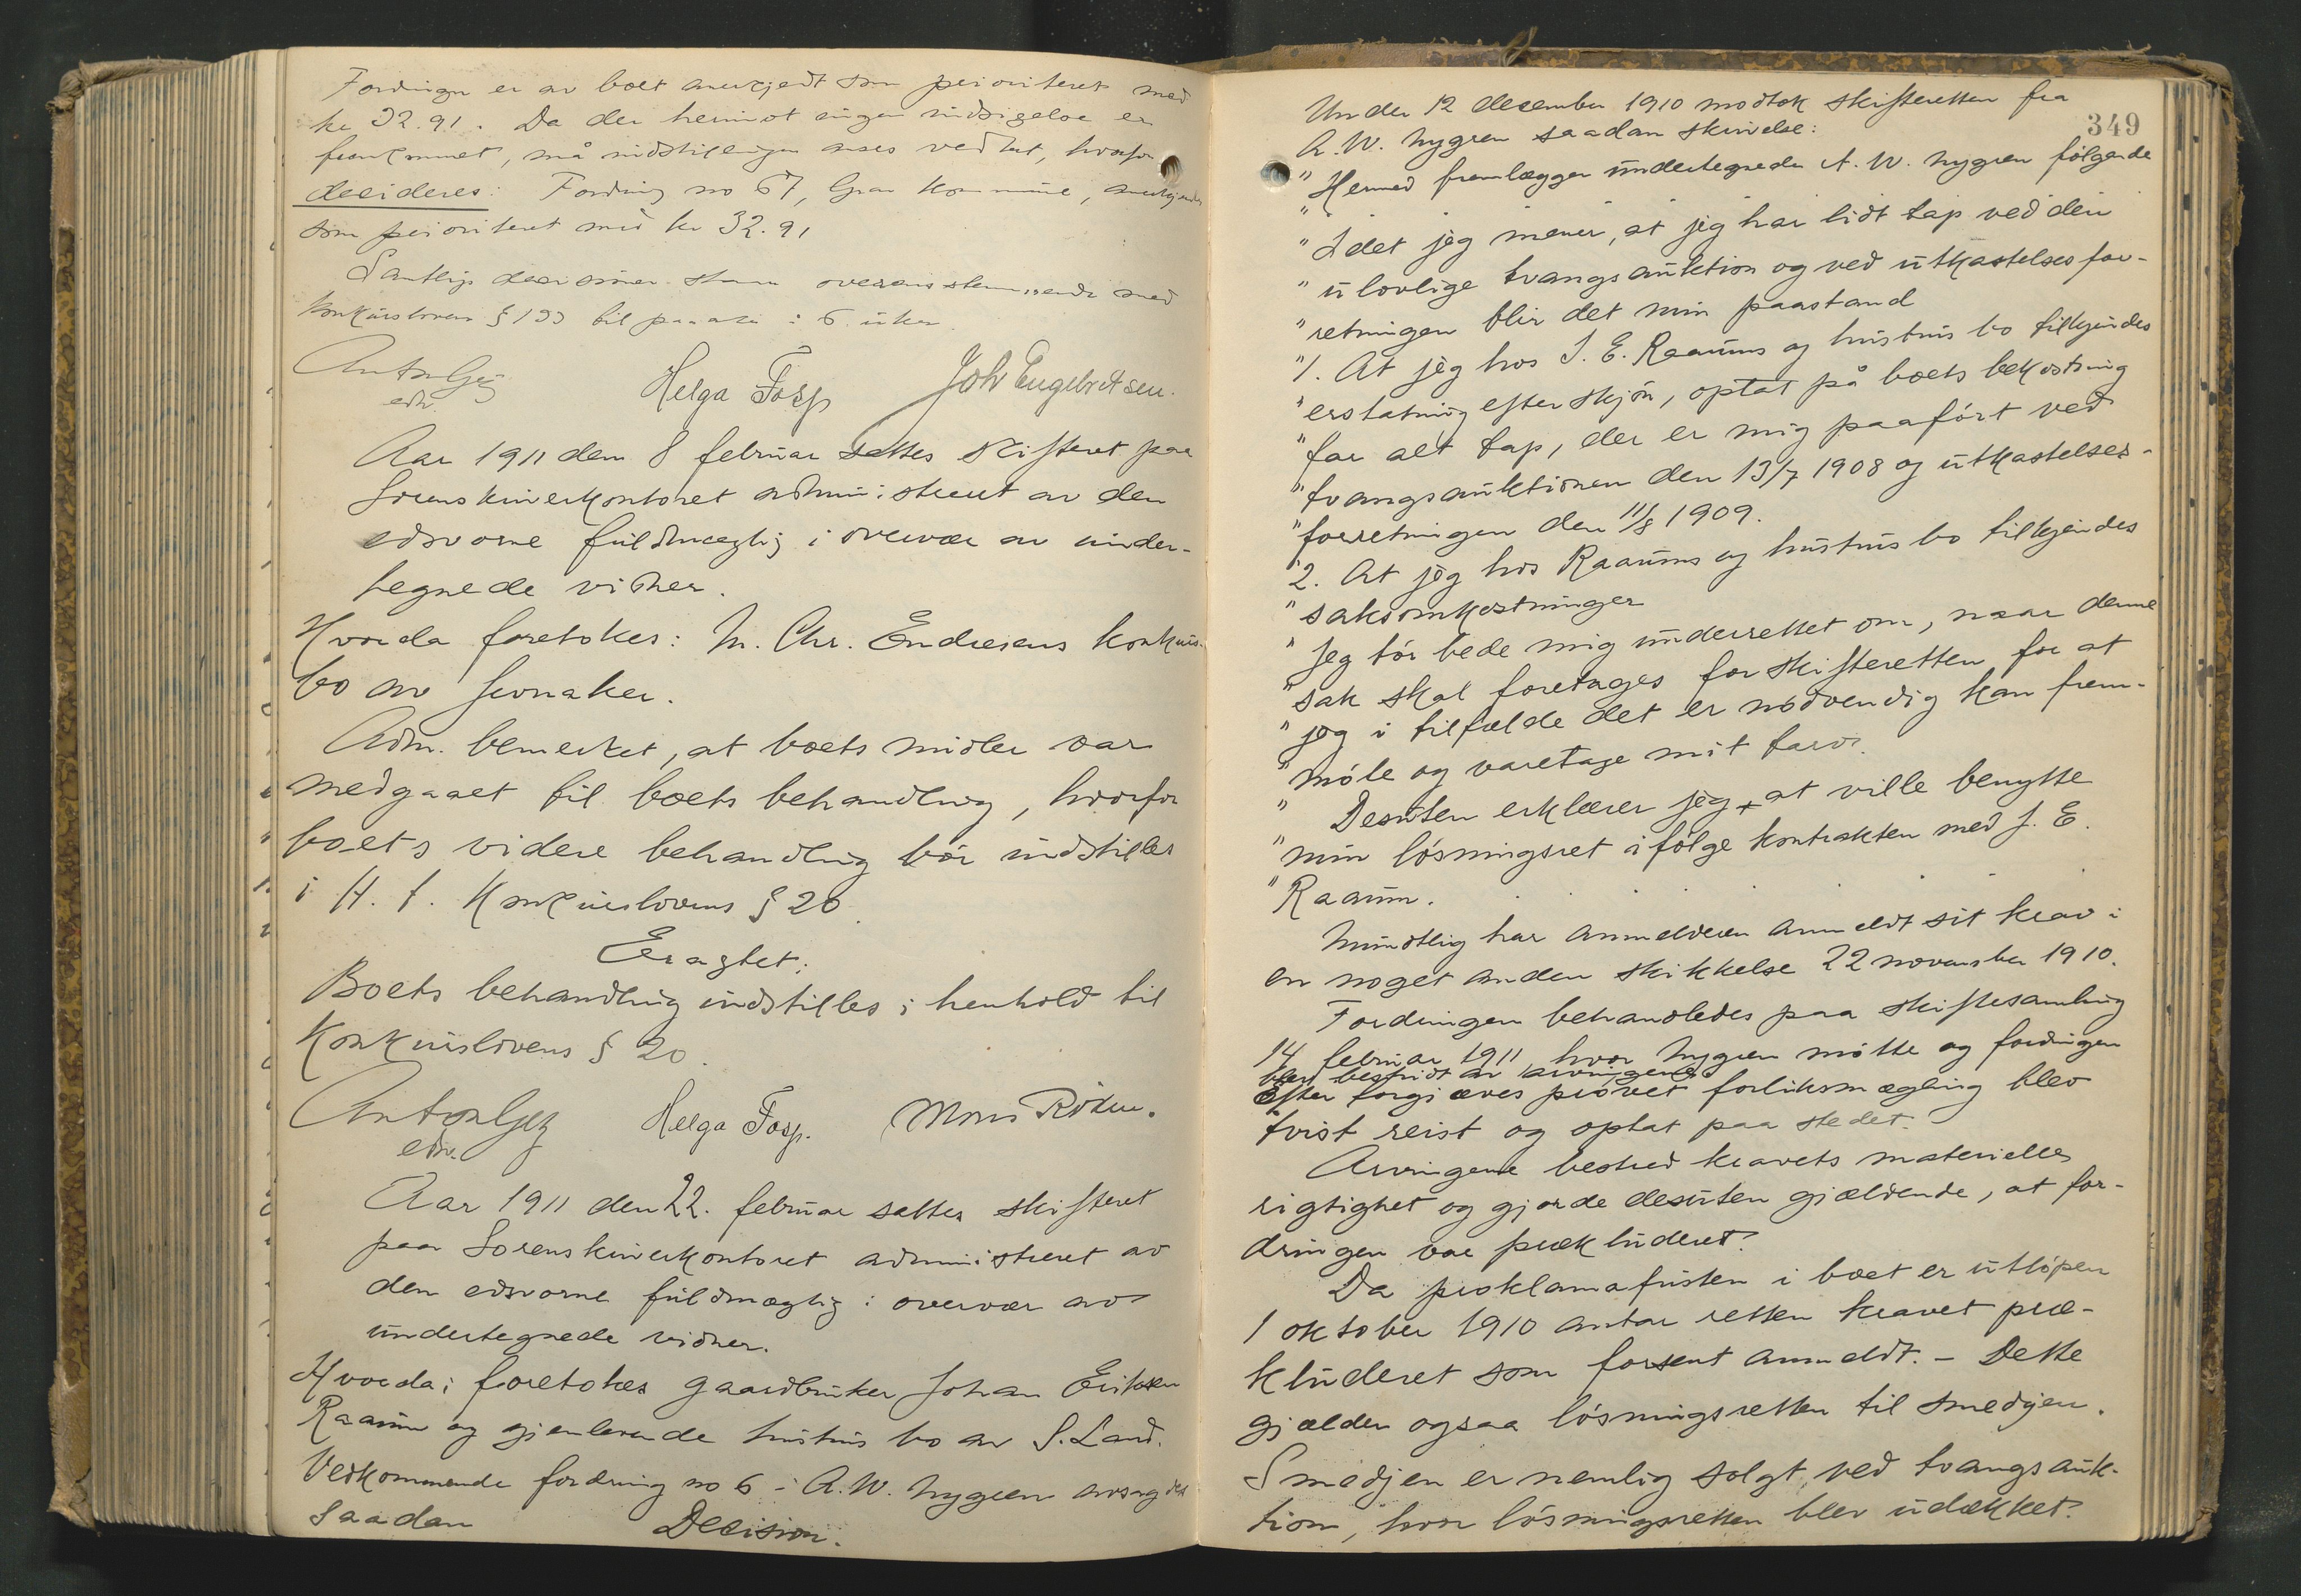 Fordringen er av boet anerkjendt som prioriteret med
kr 32.91. Da der herimot ingen indsigelse er
fremkommet, må indstillingen anses vedtat, hvorfor
decideres: Fordring no 67, Gran kommune, anerkjendes
som prioriteret med kr 32.91
Samtlige decisioner staar overensstemmende med
konkurslovens § 133 til paaanke i 6 uker.
Anton
edsv.
Helga Fosp
Joh Engebretsen.
Aar 1911 den 8 februar sattes skifteret paa
Sorenskriverkontoret administreret av den
edsvorne fuldmægtig i overvær av under-
tegnede vidner.
Hvorda foretokes: M. Chr. Endresens konkurs-
bo av Jevnaker.
Adm. bemerket, at boets midler var
medgaaet til boets behandling, hvorfor
boets videre behandling bör indstilles
i H. t. Konkurslovens § 20.
Eragtet:
Boets behandling indstilles i henhold til
Konkurslovens § 20.
Anton
edsv.
Helga Fosp.
Aar 1911 den 22. februar sattes skifteret
paa Sorenskriverkontoret administreret av
den edsvorne fuldmægtig i overvær av
undertegnede vidner.
Hvorda; foretokes gaardbruker Johan Eriksen
Raaum og gjenlevende hustrus bo av S. Land.
Vedkommende fordring no 6 - A. W. Nygren avsagdes
saadan Decision.
349
Under 12 december 1910 modtok skifteretten fra
A. W. Nygren saadan skrivelse:
" Hermed fremlægger undertegnede A. W. Nygren følgende
"
" Idet jeg mener, at jeg har lidt tap ved den
" ulovlige tvangsauktion og ved utkastelsesfor-
" retningen blir det min paastand
" 1. At jeg hos J. E. Raaums og hustrus bo tilkjendes
" erstatning efter skjön, optat på boets bekostning
" for alt tap, der er mig paafört ved
" tvangsauktionen den 13/7 1908 og utkastelses-
" forretningen den 11/8 1909.
" 2. At jeg hos Raaums og hustrus bo tilkjendes
" saksomkostninger
" Jeg tör bede mig underrettet om, naar denne
" sak skal foretages for skifteretten for at
" jeg i tilfælde det er nödvendig kan frem-
" möte og varetage mit tarv.
" Desuten erklærer jeg, at ville benytte
" min lösningsret ifölge kontrakten med J. E.
" Raaum.
Mundtlig har anmelderen anmeldt sit krav i
en noget anden skikkelse 22 november 1910.
Fordringen behandledes paa skiftesamling
14 februar 1911, hvor Nygren mötte og fordringen
blev bestridt av arvingene
Efter forgjæves prövet forliksmægling blev
tvist reist og optat paa stedet.
Arvingene bestred kravets materielle
rigtighet og gjorde desuten gjældende, at for-
dringen var prækluderet.
Da proklamafristen i boet er utlöpen
1 oktober 1910 antar retten kravet præ-
kluderet som forsent anmeldt. - Dette
gjælder ogsaa lösningsretten til smedjen.
Smedjen er nemlig solgt ved tvangsauk-
tion, hvor lösningsretten blev udækket.